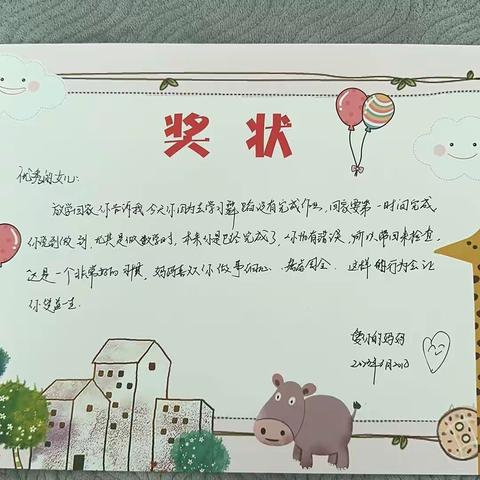 奖状
优秀的女儿：
放学回家你告诉我今天你因为去学习舞蹈没有完成作业，回家要第一时间完成
你说到做到，尤其是做数学时，本来你是已经完成了，你怕有错误，所以带回来检查
这是一个非常好的习惯，妈妈喜欢你做事细心、考虑周全，这样的行为会让
你受益一生
爱你的妈妈